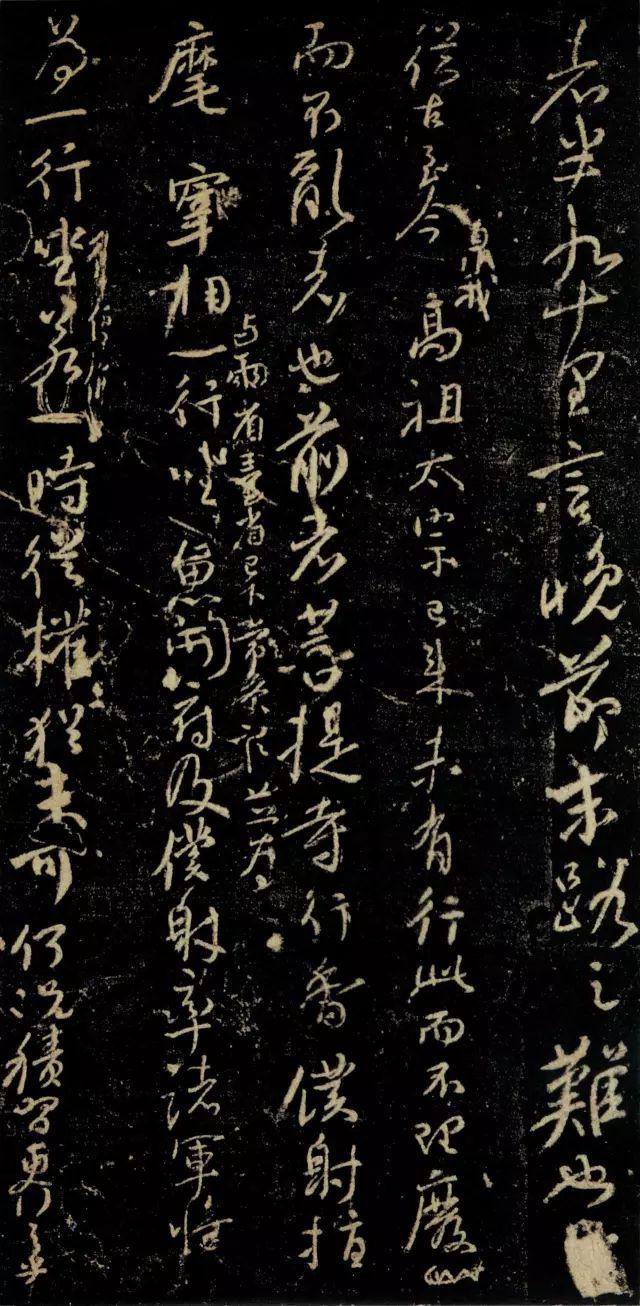 者半九十里言晚節末路之難也
從古至今臮我高祖太宗已来未有行此而不理廢此
而不亂者也前者菩提寺行香僕射指
麾宰相与兩省臺省已下常參官並為一行坐魚開府及僕射率諸軍將
為一行坐若一時從權猶未可何況積習更行之乎